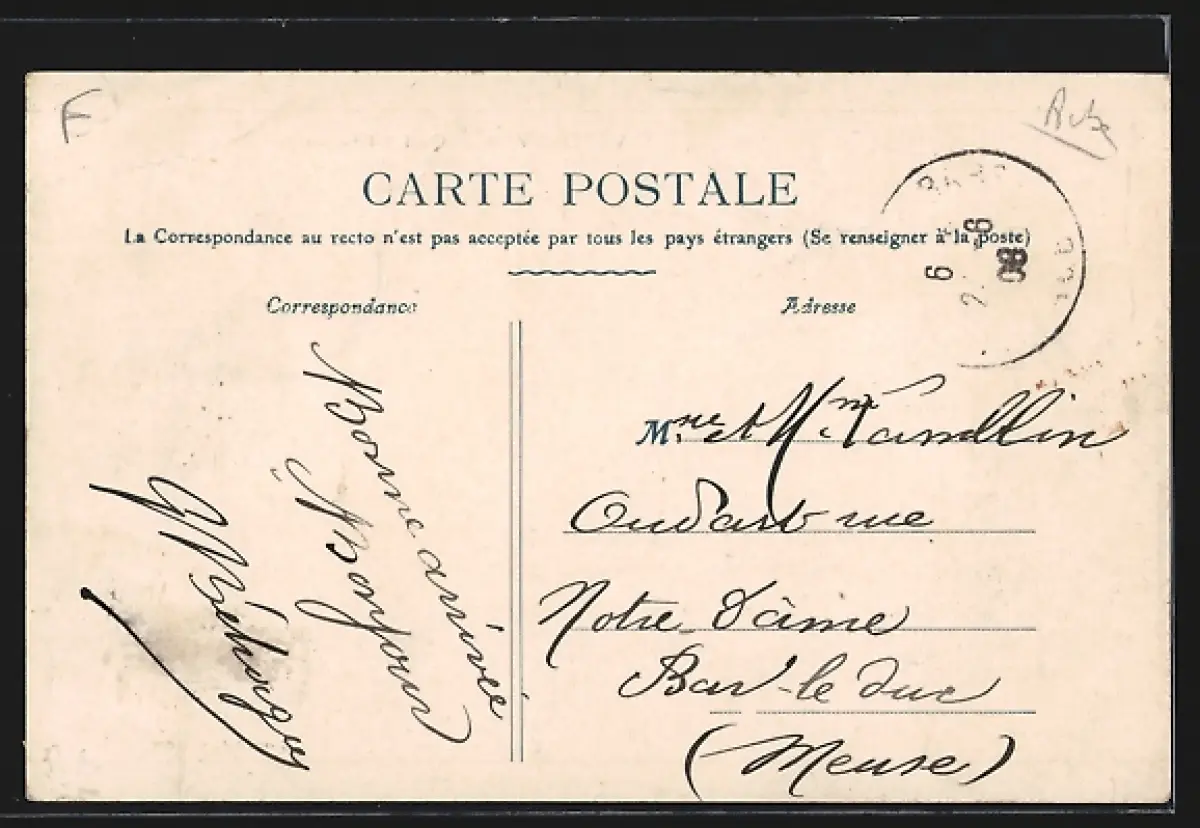 F
Aube
CARTE POSTALE
La Correspondance au recto n'est pas acceptée par tous les pays étrangers (Se renseigner à la poste)
Correspondance
Bonne arrivée
Bonjour
Adresse
6
08
M
et
Oudart rue
Notre Dâme
Bar-le duc
(Meuse)